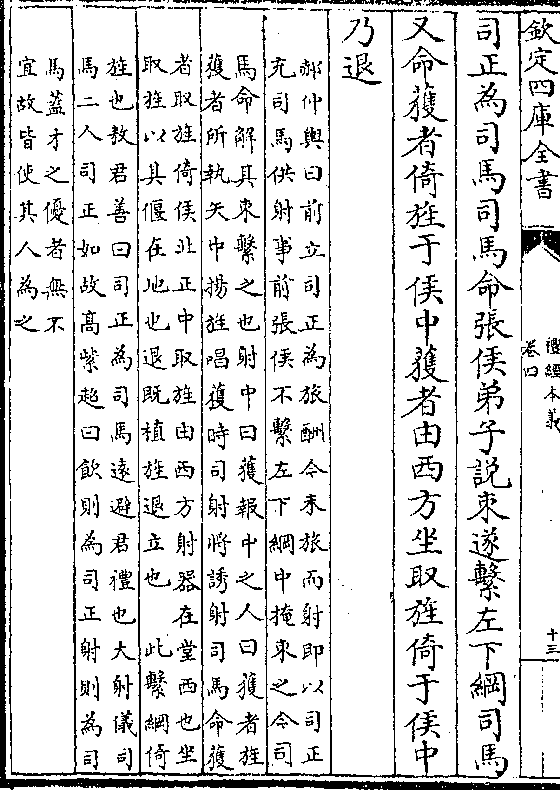 欽定四庫全書
禮經本義
卷四
十三
司正為司馬司馬命張侯弟子説束遂繫左下綱司馬
又命獲者倚旌于侯中獲者由西方坐取旌倚于侯中
乃退
郝仲輿曰前立司正為旅酬今未旅而射即以司正
充司馬供射事前張侯不繫左下綱中掩束之今司
馬命解其束繫之也射中曰獲報中之人曰獲者旌
獲者所執矢中揚旌唱獲時司射將誘射司馬命獲
者取旌倚侯北正中取旌由西方射器在堂西也坐
取旌以其偃在地也退既植旌退立也　此繫綱倚
旌也敖君善曰司正為司馬遠避君禮也大射儀司
馬二人司正如故高紫超曰飲則為司正射則為司
馬蓋才之優者無不
宜故皆使其人為之